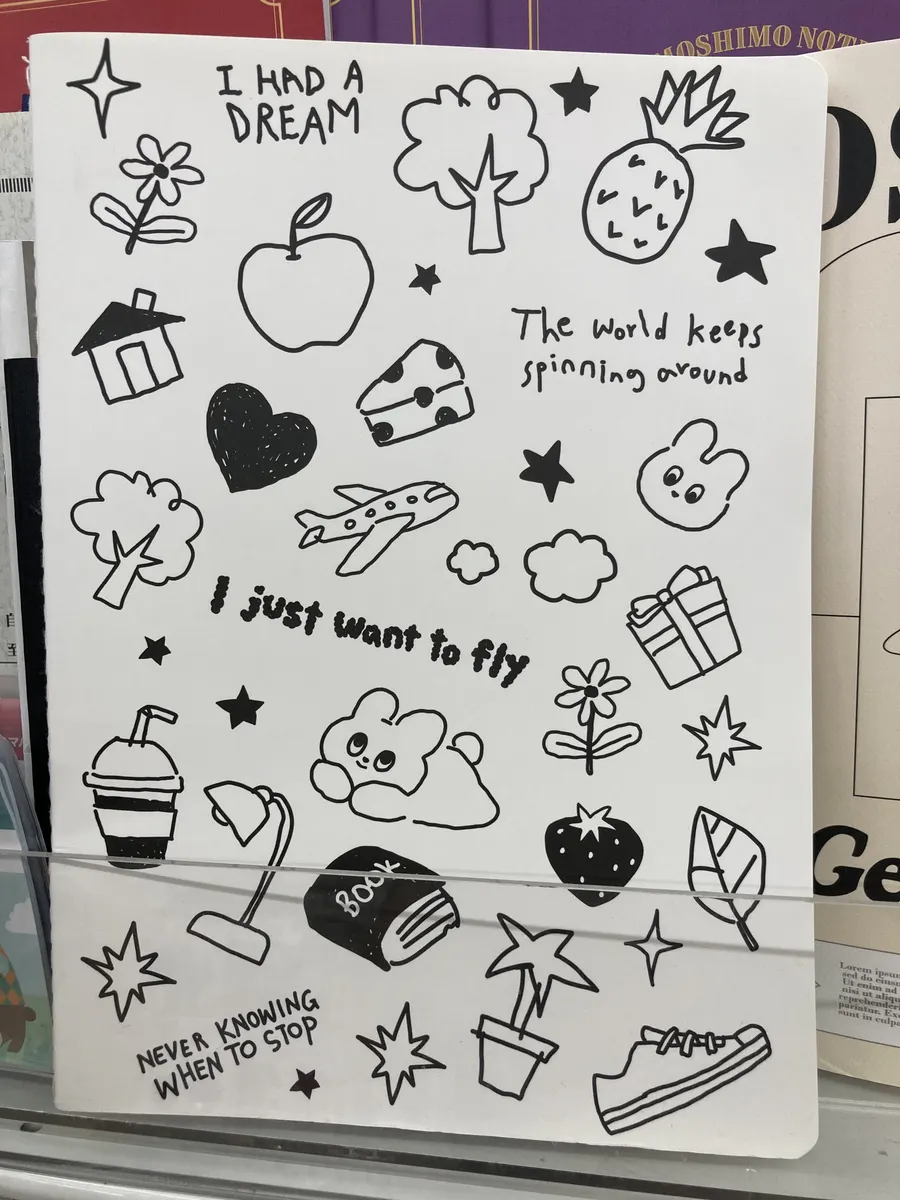 MOSHIMO NOT
I HAD A
DREAM
The world keeps
spinning around
I just want to fly
BOOK
Ge
NEVER KNOWING
WHEN TO STOP
Lorem ipsu
sed do eius
Ut enim ad
nisi ut aliqu
reprehenderi
pariatur. Exc
sunt in culpa